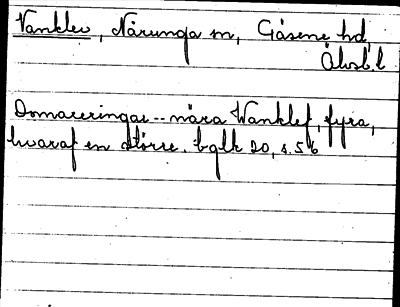 Vanklev, Närunga sn, Gäsene hd,
Älvsb. l
Domareringar -- nära Wanklef, fyra,
hwaraf en större. bglk 20, s. 56